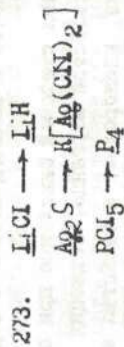 273. LiCl → LiH
Ag₂S → K[Ag(CN)₂]
PCl₅ → P₄